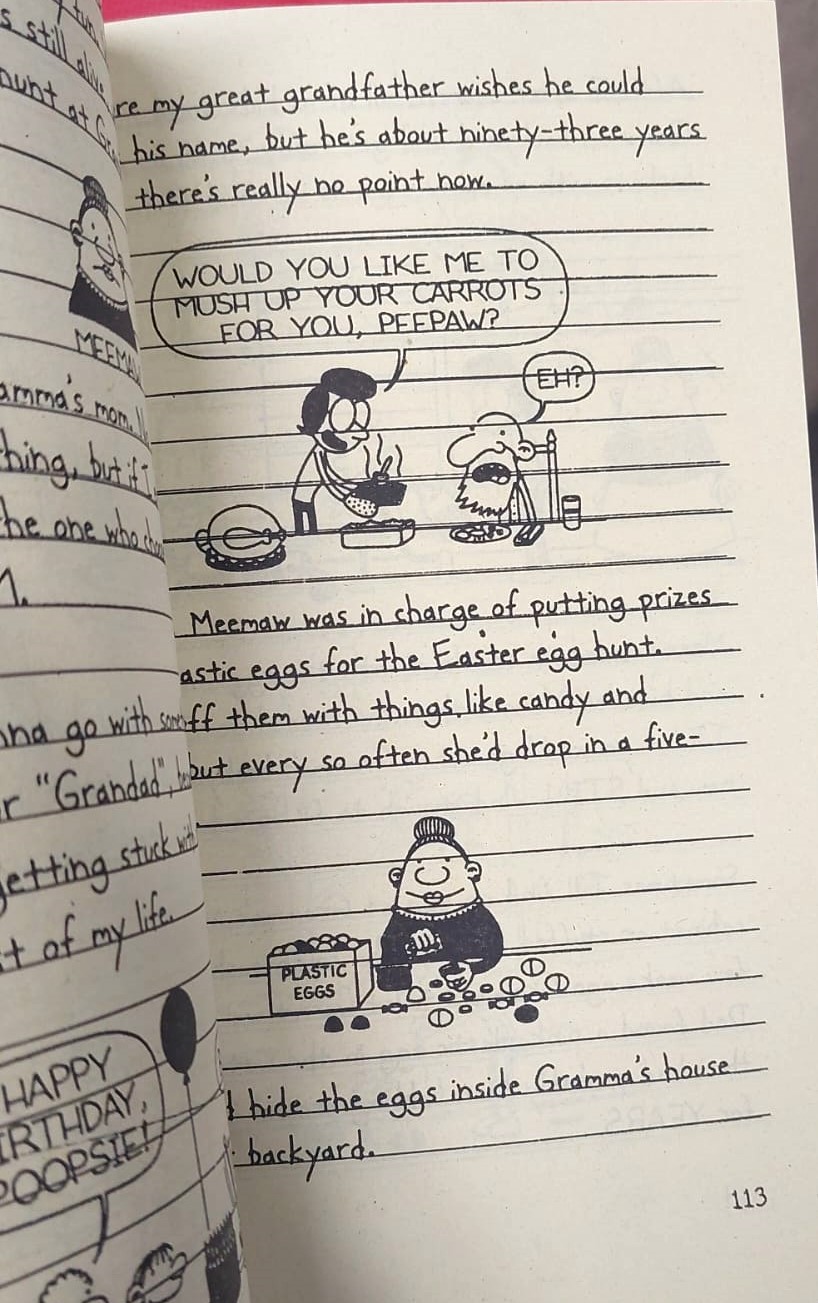 s still alive
hunt at
MEEMAW
amma's mom.
hing, but if
he one who
na go with
r "Grandad",
getting stuck with
t of my life.
HAPPY
IRTHDAY,
POOPSIE!
re my great grandfather wishes he could
his name, but he's about ninety-three years
there's really no point now.
WOULD YOU LIKE ME TO
MUSH UP YOUR CARROTS
FOR YOU, PEEPAW?
EH?
Meemaw was in charge of putting prizes
astic eggs for the Easter egg hunt.
ff them with things like candy and
but every so often she'd drop in a five-
PLASTIC
EGGS
d hide the eggs inside Gramma's house
backyard.
113